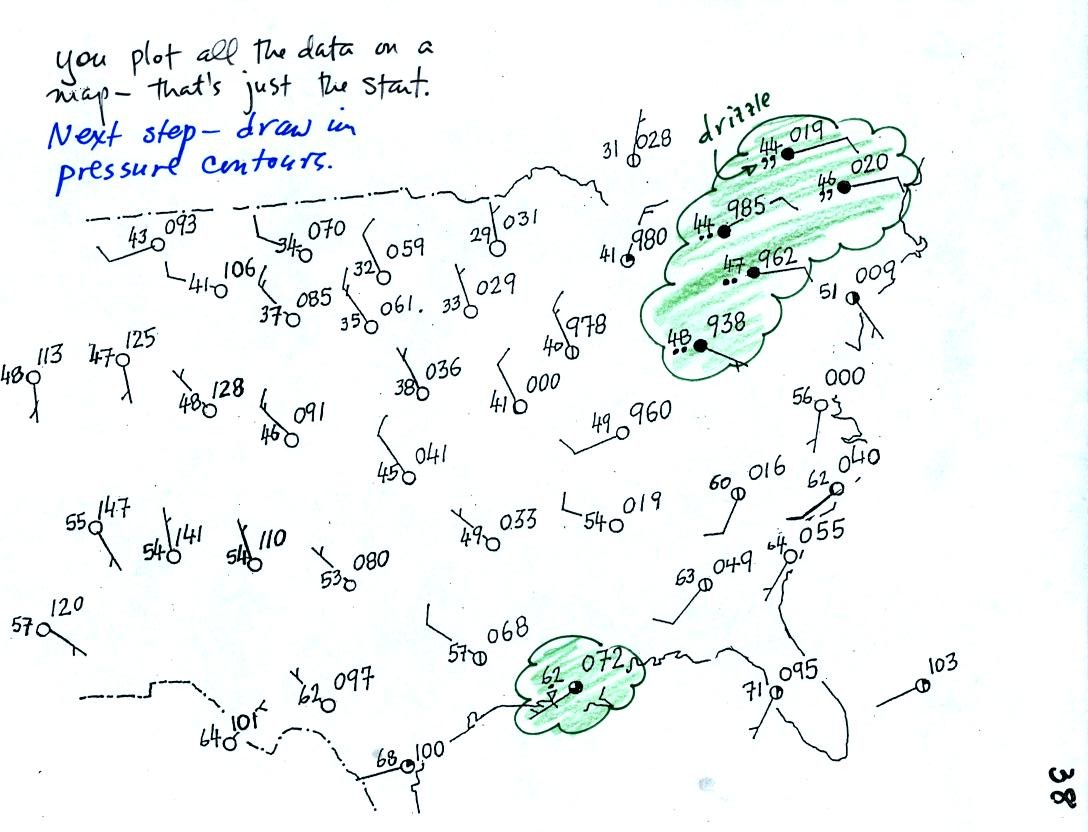 you plot all the data on a
map - that's just the start.
Next step - draw in
pressure contours.
drizzle
31 028
44 019
46 020
43 093
34 070
29 031
44 985
32 059
41 980
41 106
47 962
37 085
35 061.
33 029
51 009
40 978
48 938
48 113
47 125
38 036
41 000
56 000
48 128
46 091
49 960
45 041
60 016
62 040
55 147
54 141
54 110
49 033
54 019
64 055
53 080
63 049
57 120
57 068
62 072
62 097
71 095
103
64 101
68 100
38